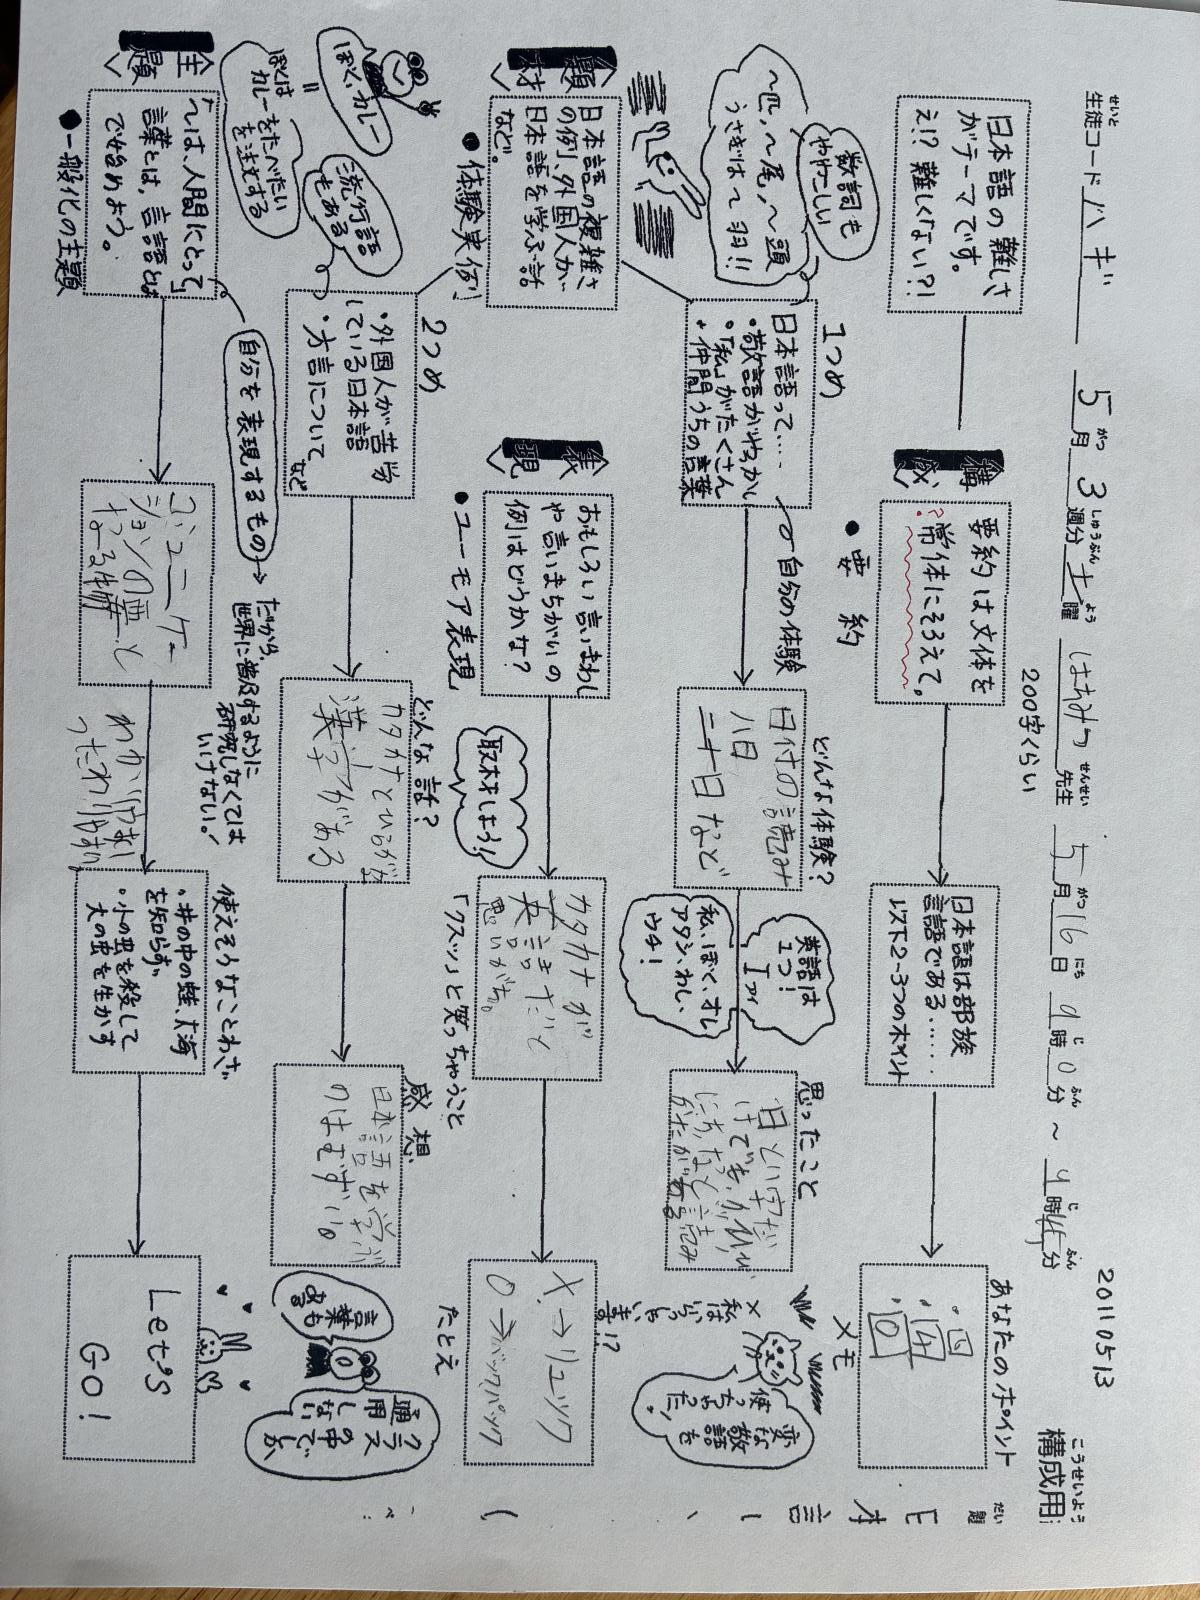 20110513
構成用
こうせいよう
生徒コード ハギ 5月3週分 土曜 はちみつ 先生 5月16日 9時0分 ～ 9時45分
せいと がつ しゅうぶん よう せんせい がつ にち じ ふん じ ふん
200字くらい
日本語の難しさ
がテーマです。
え!? 難しくない?!
構成
要約は文体を
常体にそろえて。
?
●要約
日本語は部族
言語である……
以下2-3つのポイント
あなたのポイント
メモ
題
だい
数詞も
ややこしい
～匹、～尾、～頭
うさぎは～羽!!
1つめ
日本語って….
・敬語がむずかしい
・「私」がたくさん
・仲間うちの言葉
自分の体験
どんな体験?
日付の読み
八日
二十日など
英語は
1つ!
I アイ
私、ぼく、オレ
アタシ、わし、
ウチ!
思ったこと
変な
敬語を
使っちゃった!
題材
日本語の複雑さ
の例、外国人が
日本語を学ぶ話
など。
●体験実例
表現
おもしろい言いまわし
や言いまちがいの
例はどうかな?
●ユーモア表現
取材しよう!
カタカナが
英語だと
思いがち。
「クスッ」と笑っちゃうこと
×→リュック
○→バックパック
たとえ
ぼく、カレー
=
ぼくは
カレーをたべたい
を注文する
流行語
もある
2つめ
・外国人が苦労
している日本語
・方言について
など
どんな話?
カタカナとひらがな
漢字がある
感想
日本語を学ぶ
のはむずい。
クラス
の中でしか
通用
しない
言葉
もある
主題
「～は、人間にとって」
言葉とは、言語とは
で始めよう。
●一般化の主題
自分を表現するもの→
だから、
世界に普及するように
研究しなくては
いけない!
使えそうなことわざ
・井の中の蛙、大海
を知らず
・小の虫を殺して
大の虫を生かす
Let's
GO!